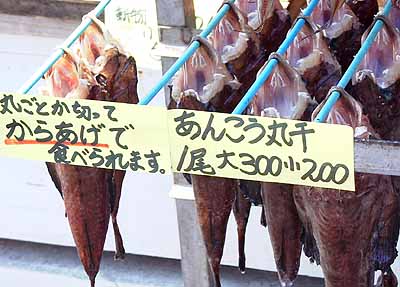 丸ごとか切って
からあげで
食べられます。
あんこう丸干
1尾大300小200